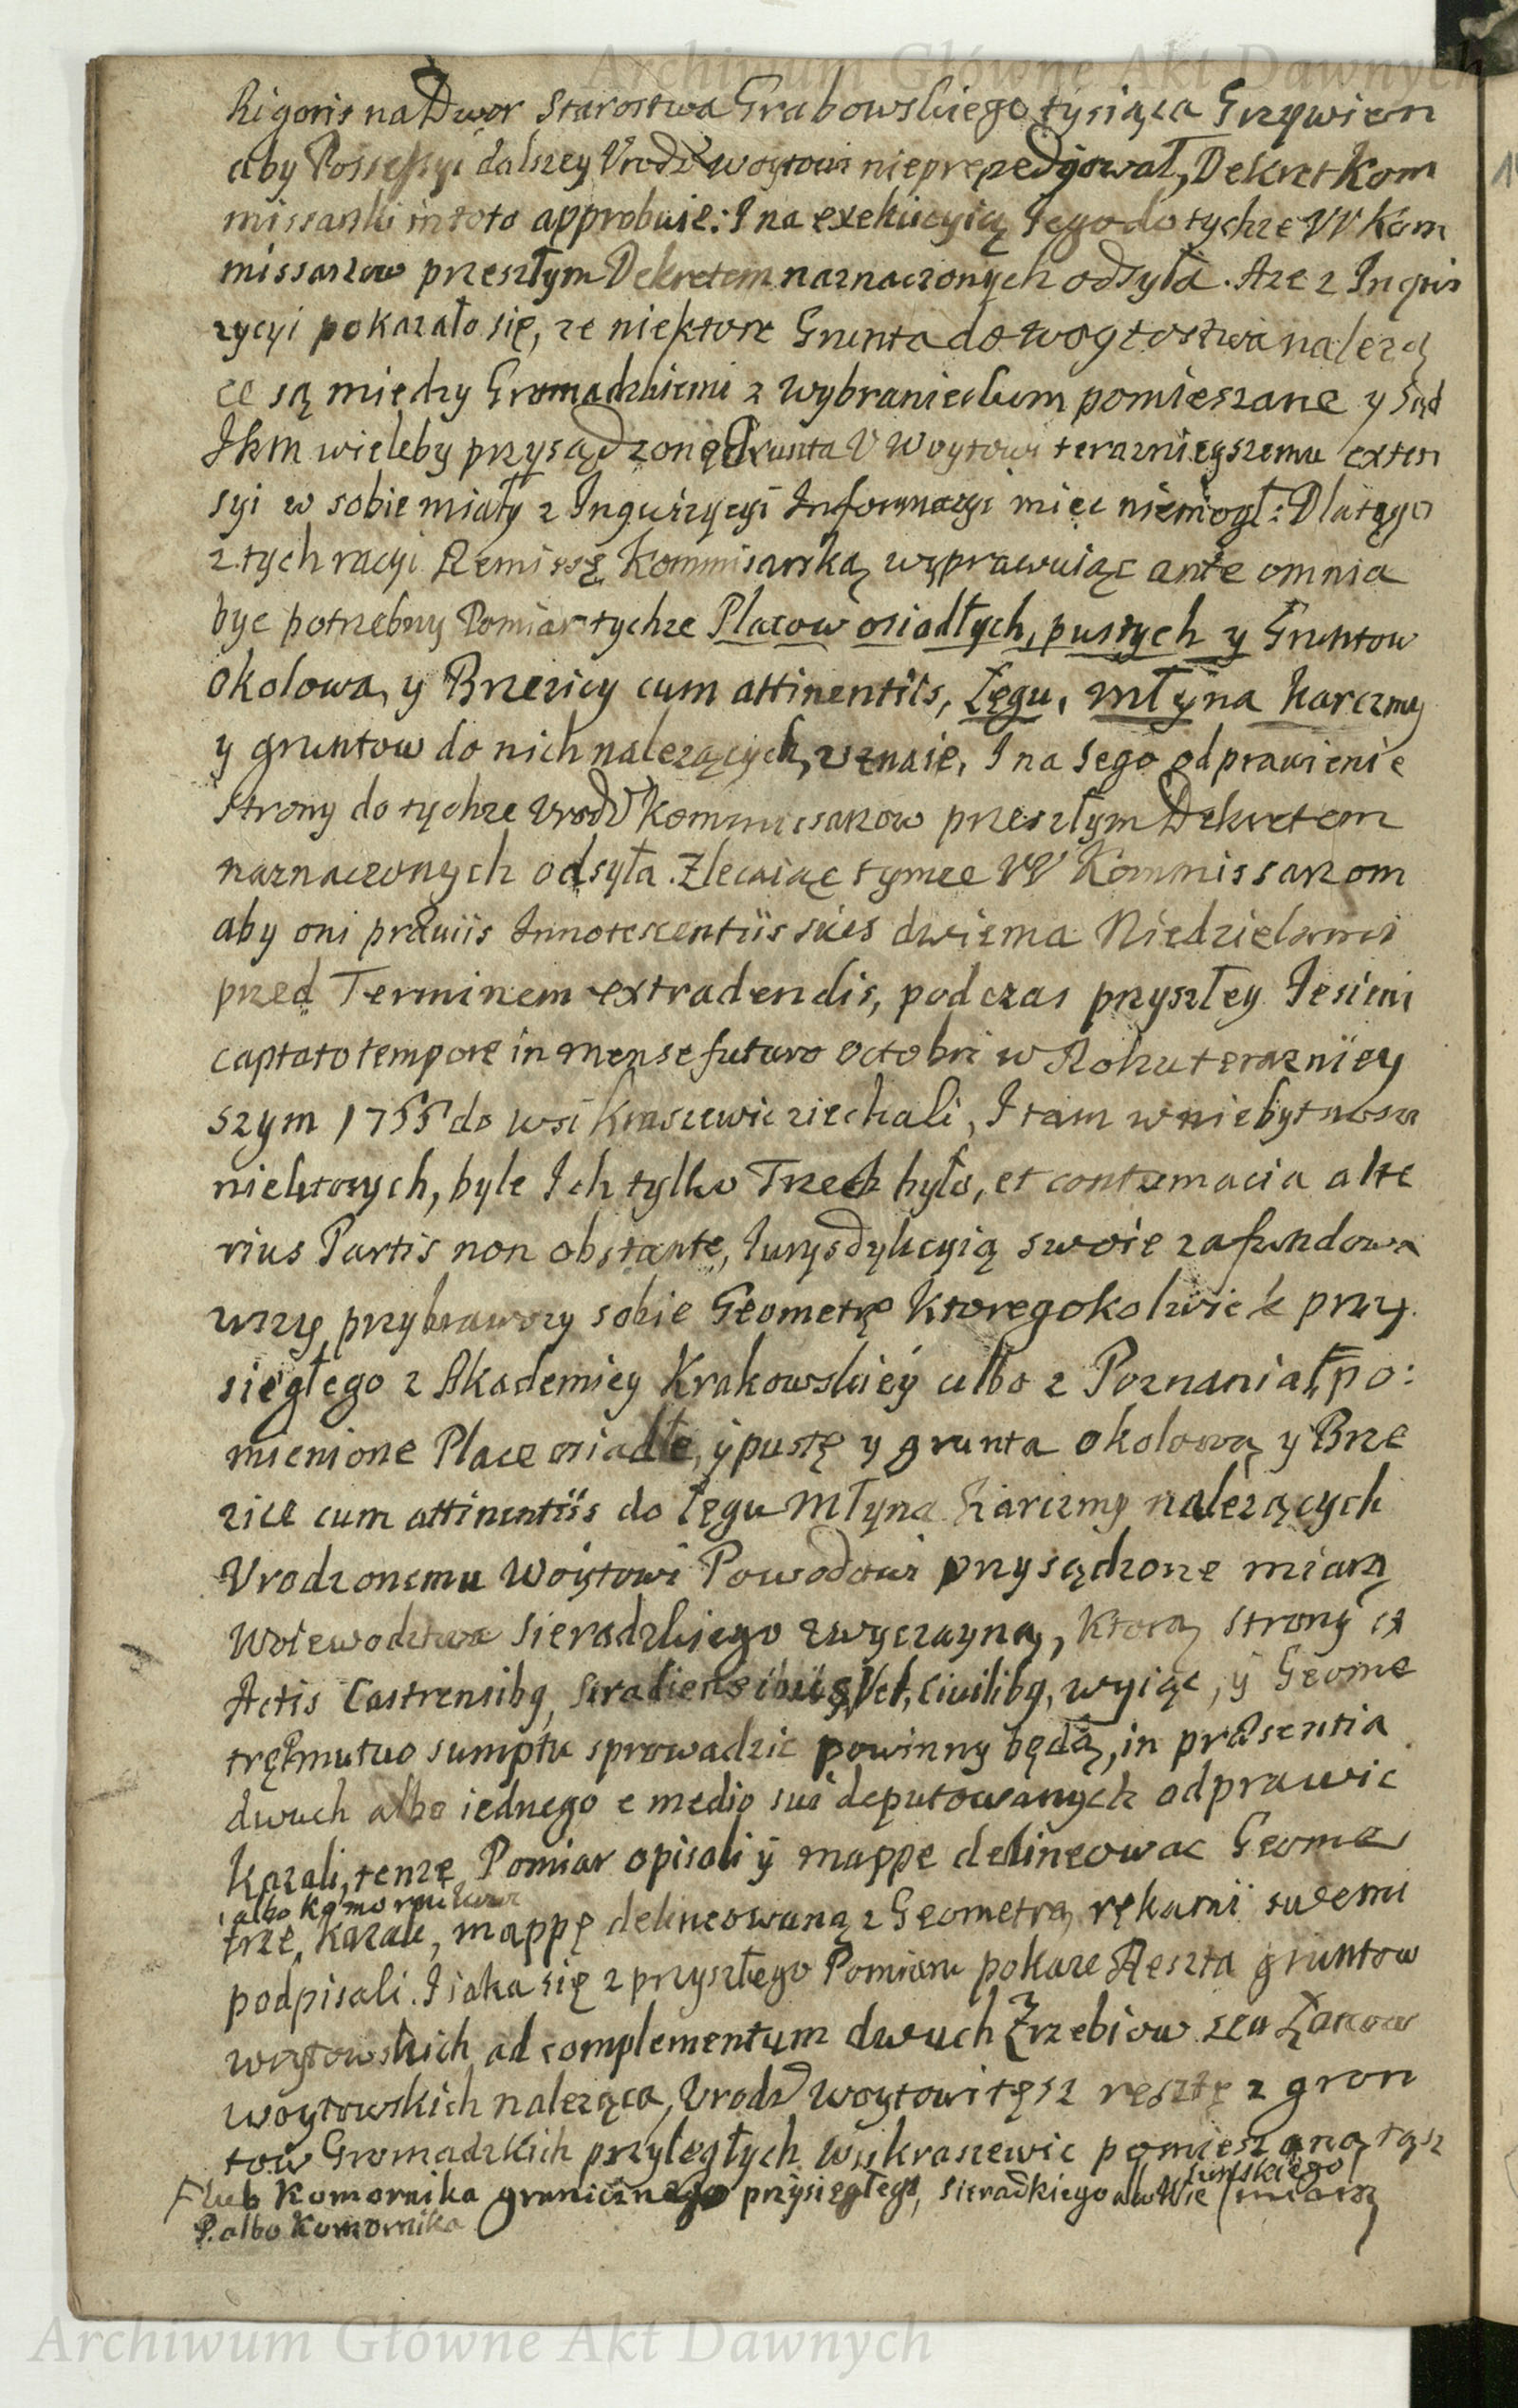 Archiwum Główne Akt Dawnych
Rigoris na Dwor Starostwa Grabowskiego tysiąca Grzywien
aby Possessyi dalszey Urodz Woytowi nieprepedyował, Dekret Kom
missarski in toto approbuie: I na exekucyią Iego do tychze W Kom
missarzow przeszłym Dekretem naznaczonych odsyła. Aze z Inqwi
zycyi pokazało się, ze niektore Grunta do Woytostwa nalezą
ce są między Gromadzkiemi z Wybranieckim pomieszane y Sąd
Ikm wieleby przysądzone Grunta U Woytowi teraznieyszemu exten
syi w sobie miały z Inquizycyi Informacyi miec niemogł: Dlatego
z tych racyi Remissę Kommisarską wyprawuiąc ante omnia
byc potrzebny Pomiar tychze Placow osiadłych, pustych y Gruntow
Okolowa, y Brzezicy cum attinentiis, Łęgu, Młyna Karczmy
y gruntow do nich nalezących, uznaie, I na Iego odprawienie
strony do tychze Urodz Kommissarzow przeszłym Dekretem
naznaczonych odsyła. Zlecaiąc tymze W Kommissarzom
aby oni praeviis Innotescentiis suis dwiema Niedzielami
przed Terminem extradendis, podczas przyszłey Iesieni
captato tempore in mense futuro Octobri w Roku terazniey
szym 1755 do wsi Kraszewic ziechali, I tam w niebytnosci
niektorych, byle Ich tylko Trzech było, et contumacia alte
rius Partis non obstante, Iurysdykcyią swoie zafundowa
wszy, przybrawszy sobie Geometrę Ktoregokolwiek przy
sięgłego z Akademiey Krakowskiey albo z Poznania Ŧ, po:
mienione Place osiadłe, y puste y grunta okolową y Brze
zice cum attinentiis do Łęgu Młyna Karczmy nalezących
Urodzonemu Woytowi Powodowi przysądzone miarą
Woiewodztwa Sieradzkiego zwyczayną, Ktorą strony ex
Actis Castrensibq, Siradiensibus, Vel, Civilibq, wyiąc, y Geome
trę Ŧ mutuo sumptu sprowadzic powinny będą, in praesentia
dwuch albo iednego e medio sui deputowanych odprawic
Kazali, tenze Pomiar opisali y mappe delineowac Geome
albo Komornikowi
trze, Kazali, mappę delineowaną z Geometrą rękami swemi
podpisali. I iaka się z przyszłego Pomiaru pokaze Reszta gruntow
woytowskich ad complementum dwuch Zrzebiow seu Łanow
woytowskich naleząca, Urodz Woytowi tęsz resztę z gron
tow Gromadzkich przyległych wsi Kraszewic pomieszaną tąsz
Ŧ lub Komornika granicznego przysięgłego, Sieradkiego albo Wie lunskiego miarą
P. albo Komornika
Archiwum Główne Akt Dawnych